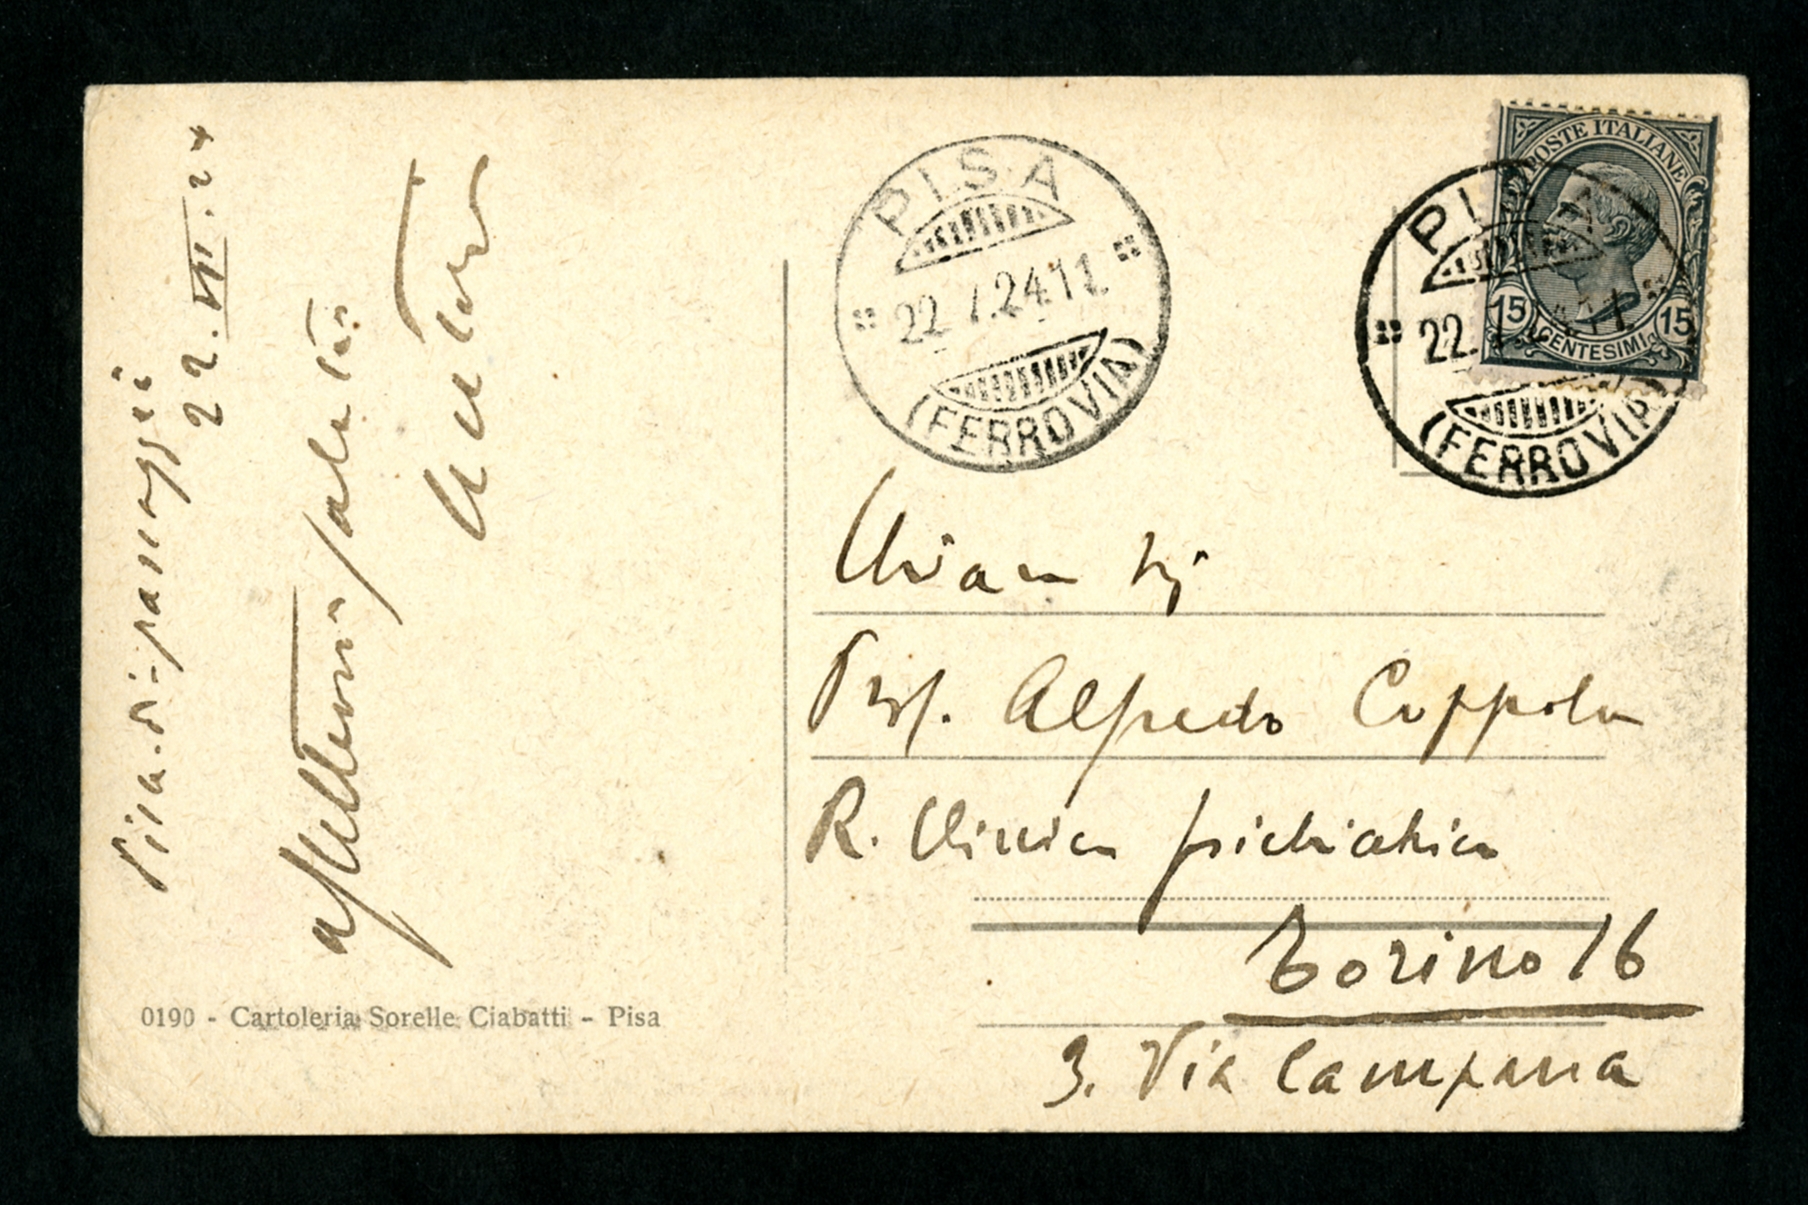 Pisa. di-passaggio
22.VII.24
affettuosi saluti
PISA
22.7.24.11
(FERROVIA)
POSTE ITALIANE
15 CENTESIMI 15
PISA
22.
(FERROVIA)
Chiar.
Prof. Alfredo Coppola
R. Clinica psichiatrica
Torino 16
3. Via Campana
0190 - Cartoleria Sorelle Ciabatti - Pisa